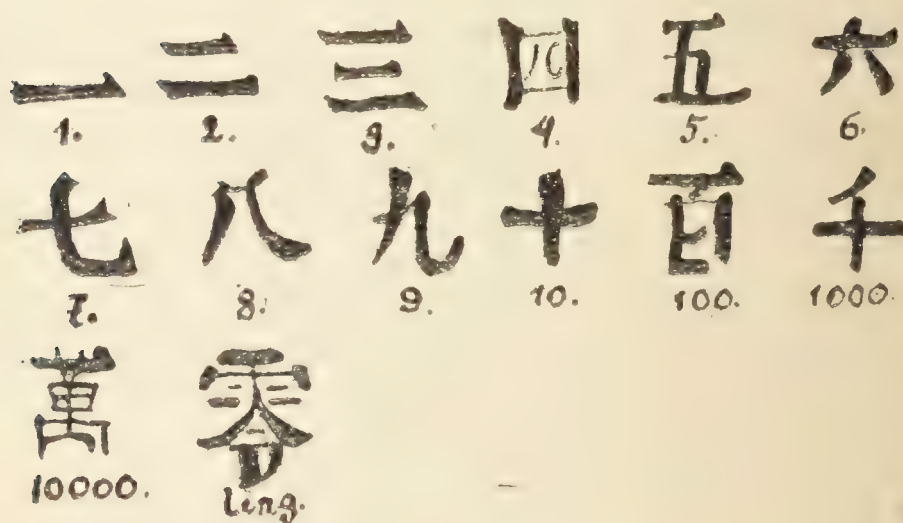 一 二 三 四 五 六
1. 2. 3. 4. 5. 6.
七 八 九 十 百 千
7. 8. 9. 10. 100. 1000.
萬 零
10000. ling.